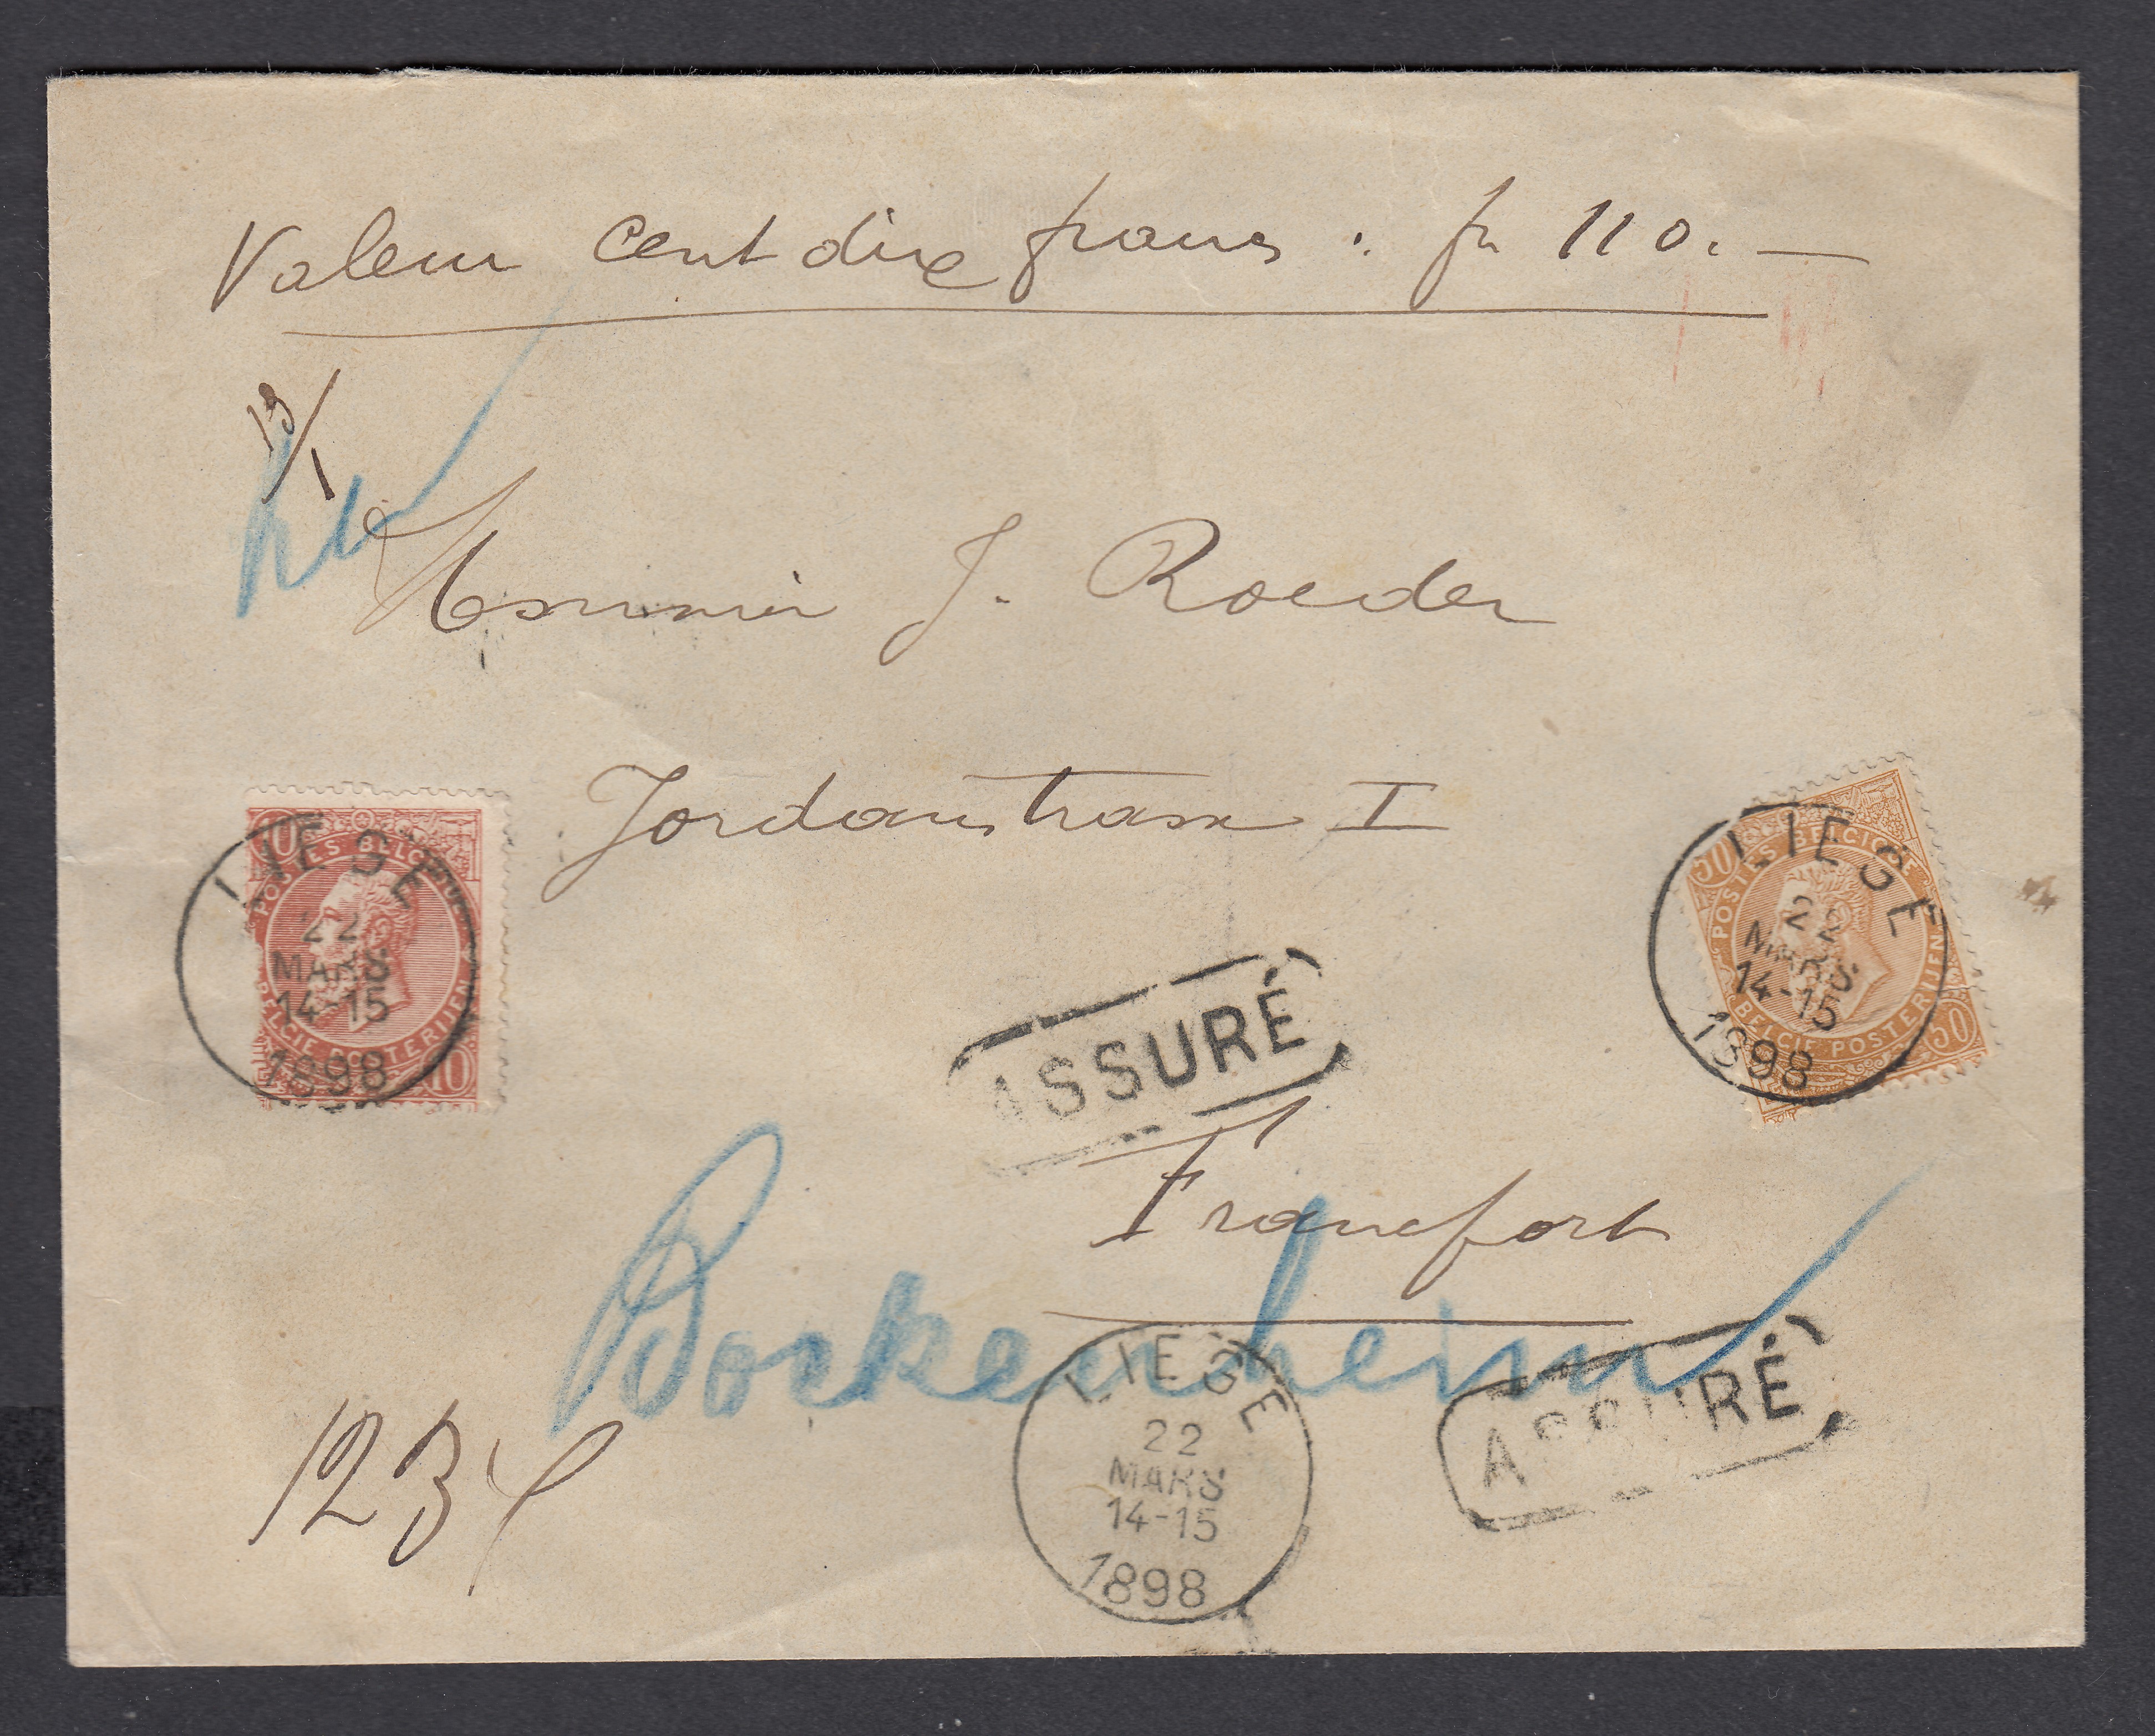 Valeur cent dix francs : fr 110.—
13/1
Monsieur J. Roeder
Jordanstrasse I
10
POSTES BELGIQUE
BELGIE POSTERIJEN
10
LIEGE
22
MARS
14-15
1898
50
POSTES BELGIQUE
BELGIE POSTERIJEN
50
LIEGE
22
MARS
14-15
1898
ASSURÉ
Francfort
Bockenheim
LIEGE
22
MARS
14-15
1898
ASSURÉ
123